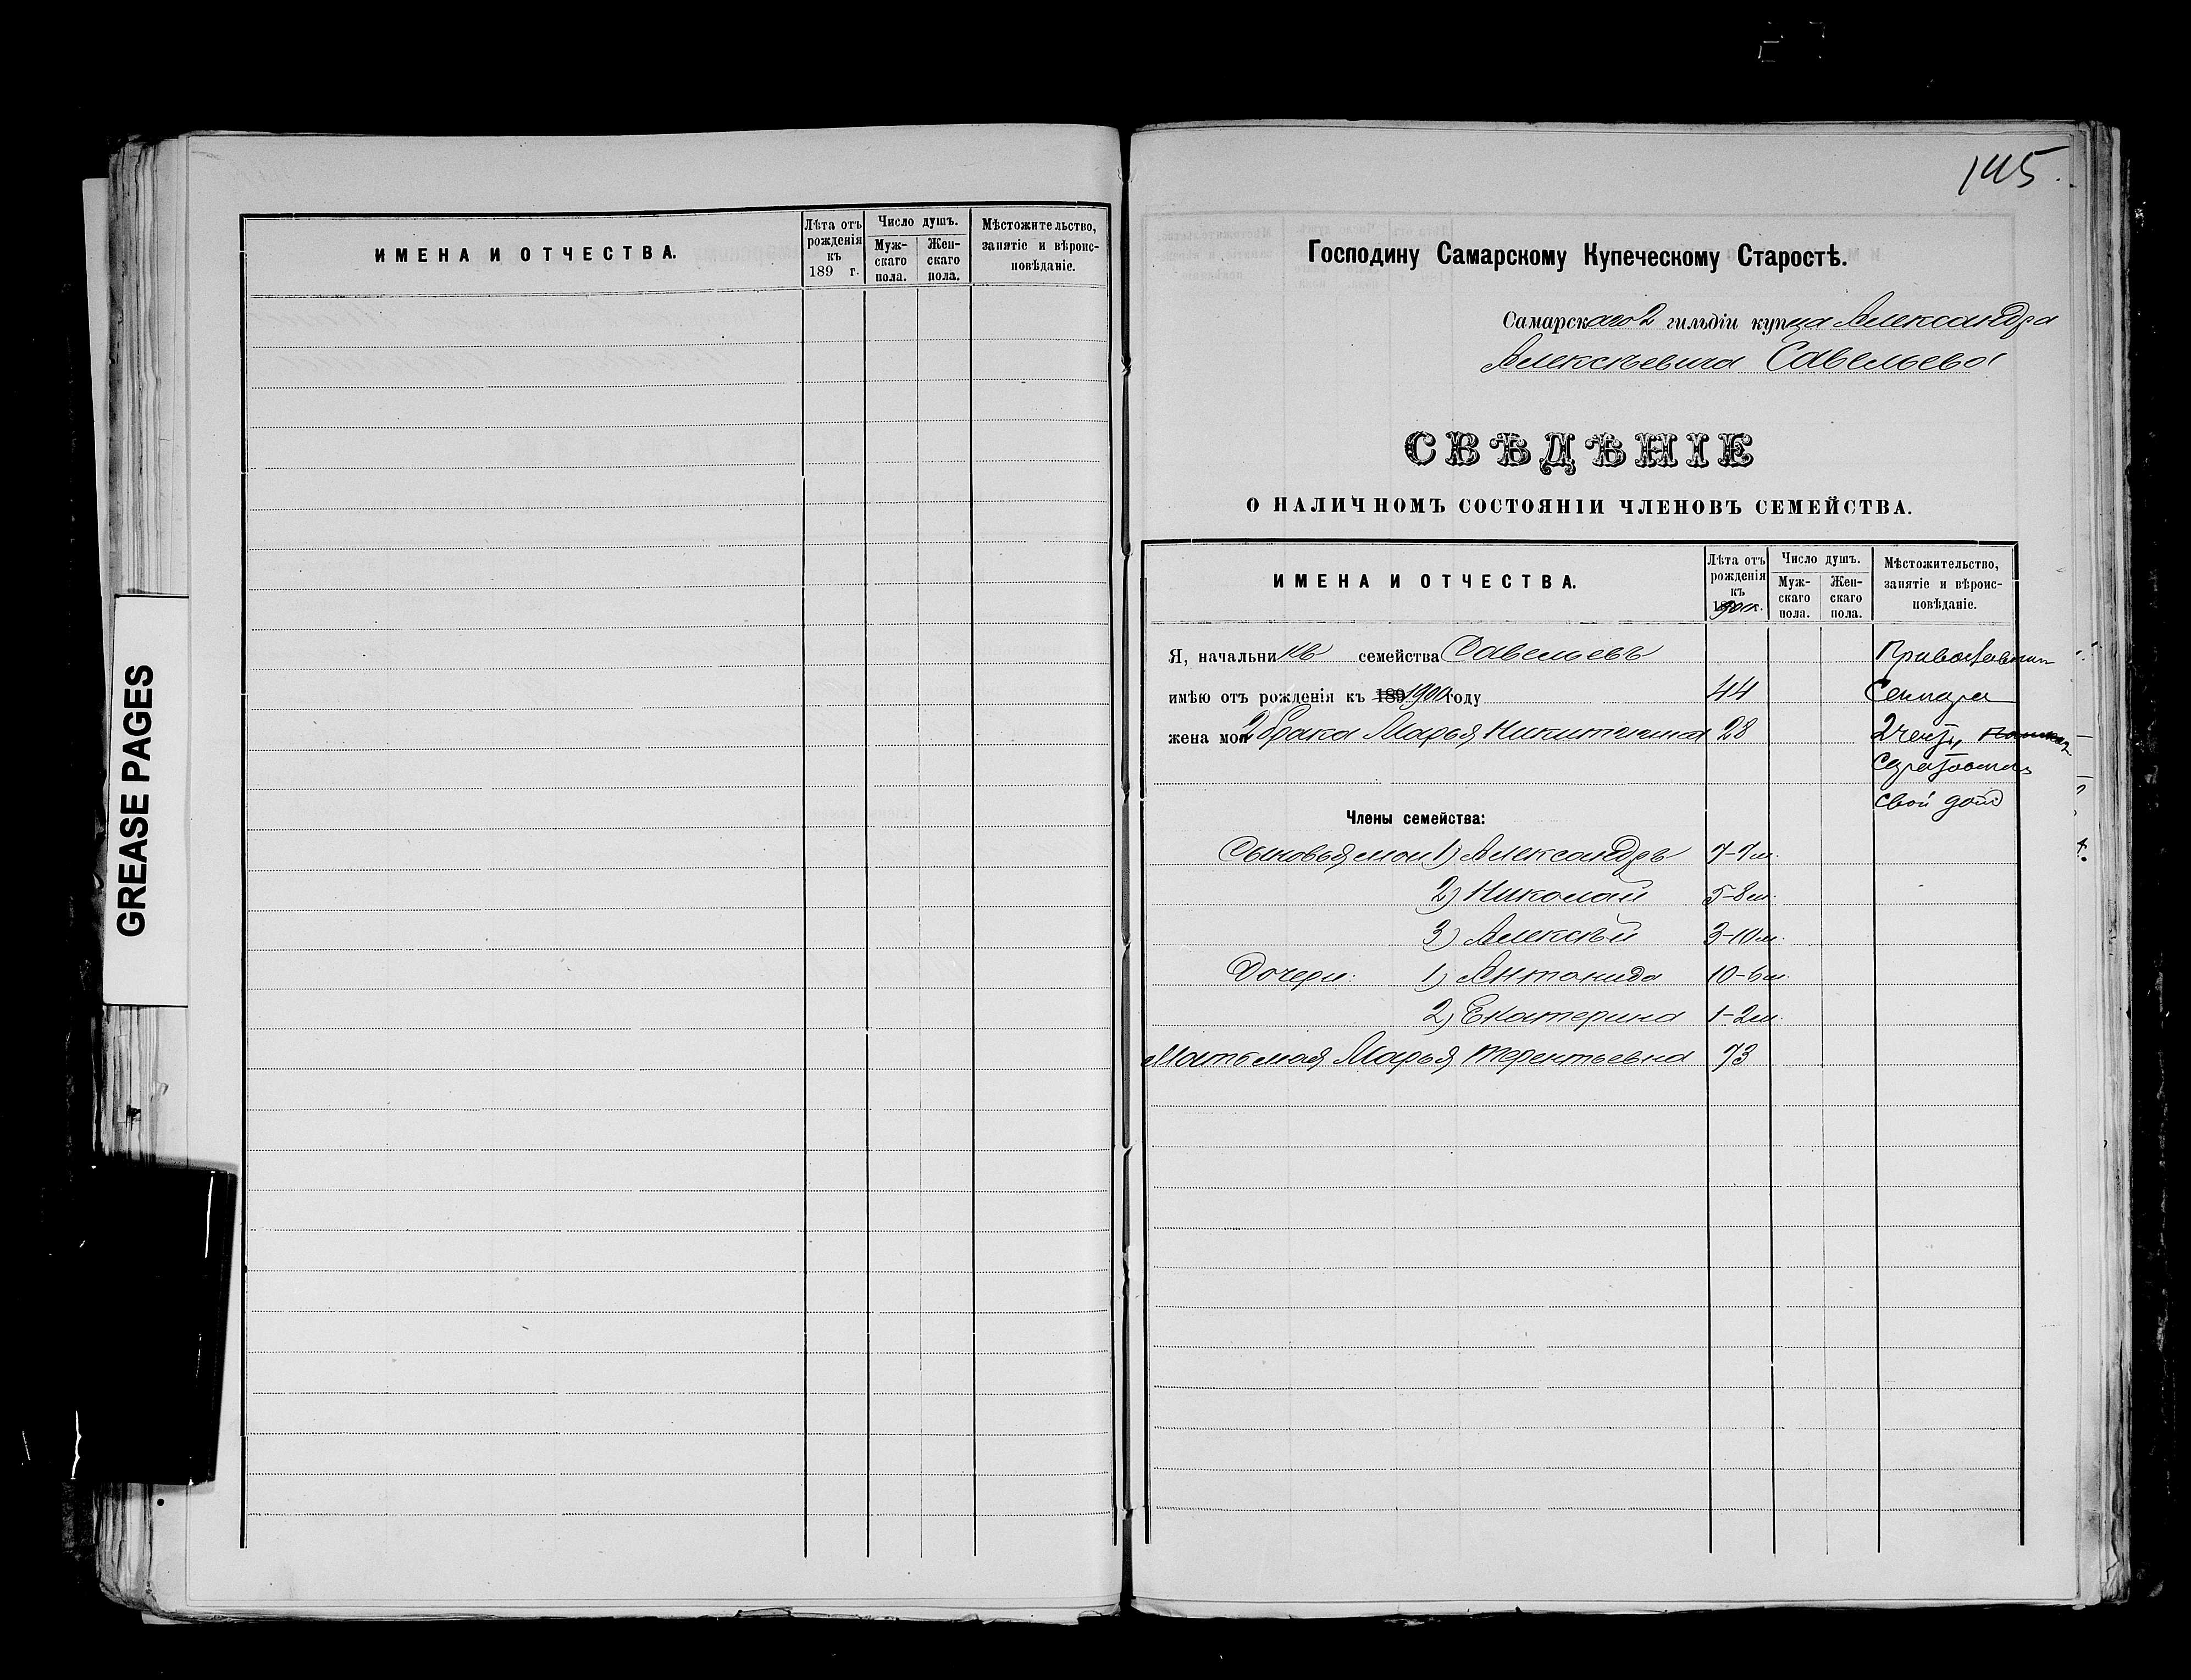 GREASE PAGES
ИМЕНА И ОТЧЕСТВА.
Лѣта отъ рожденія къ 189 г.
Число душъ.
Муж-скаго пола.
Жен-скаго пола.
Мѣстожительство, занятіе и вѣроис-повѣданіе.
145.
Господину Самарскому Купеческому Старостѣ.
Самарскаго 2 гильдіи купца Александра
Алексѣевича Савельева
СВѢДѢНІЕ
О НАЛИЧНОМЪ СОСТОЯНІИ ЧЛЕНОВЪ СЕМЕЙСТВА.
ИМЕНА И ОТЧЕСТВА.
Лѣта отъ рожденія къ 1900 г.
Число душъ.
Муж-скаго пола.
Жен-скаго пола.
Мѣстожительство, занятіе и вѣроис-повѣданіе.
Я, начальникъ семейства Савельевъ
имѣю отъ рожденія къ 189 1900 году 44 Самара
жена моя 2 брака Марья Никитична 28 2 части,
свой домъ
Члены семейства:
Сыновья мои 1) Александръ 7-7 м.
2) Николай 5-8 м.
3) Алексѣй 3-10 м.
Дочери: 1) Антонида 10-6 м.
2) Екатерина 1-2 м.
Мать моя Марья Терентьевна 73